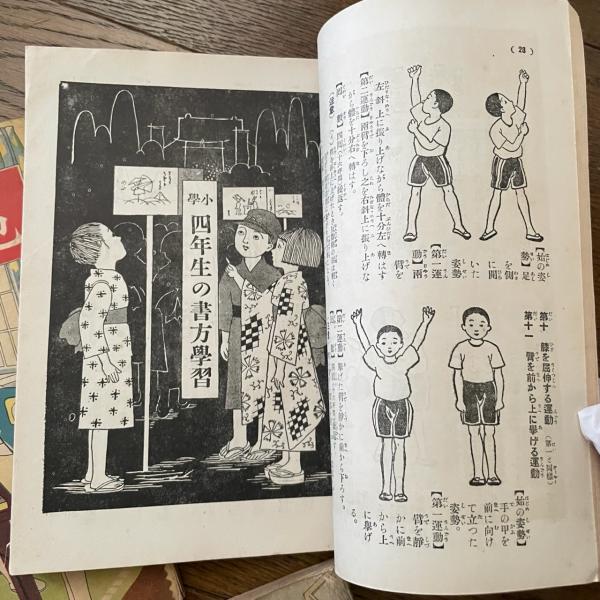 ( 28 )
【始の姿
勢】足
を側
に開
いた
姿勢
【第一運
動】兩
臂を
左斜上に振り上げながら體を十分左へ轉はす
【第二運動】兩臂を下ろし之を右斜上に振り上げな
がら體を十分右へ轉はす。
第十 膝を屈伸する運動（第一と同樣）
第十一 臂を前から上に擧げる運動
【始の姿勢】
手の甲を
前に向け
て立つた
姿勢。
【第一運動】
臂を靜
かに前
から上
に擧げ
る。
【第二運動】擧げた臂を靜かに前から下ろす。
小學
四年生の書方學習